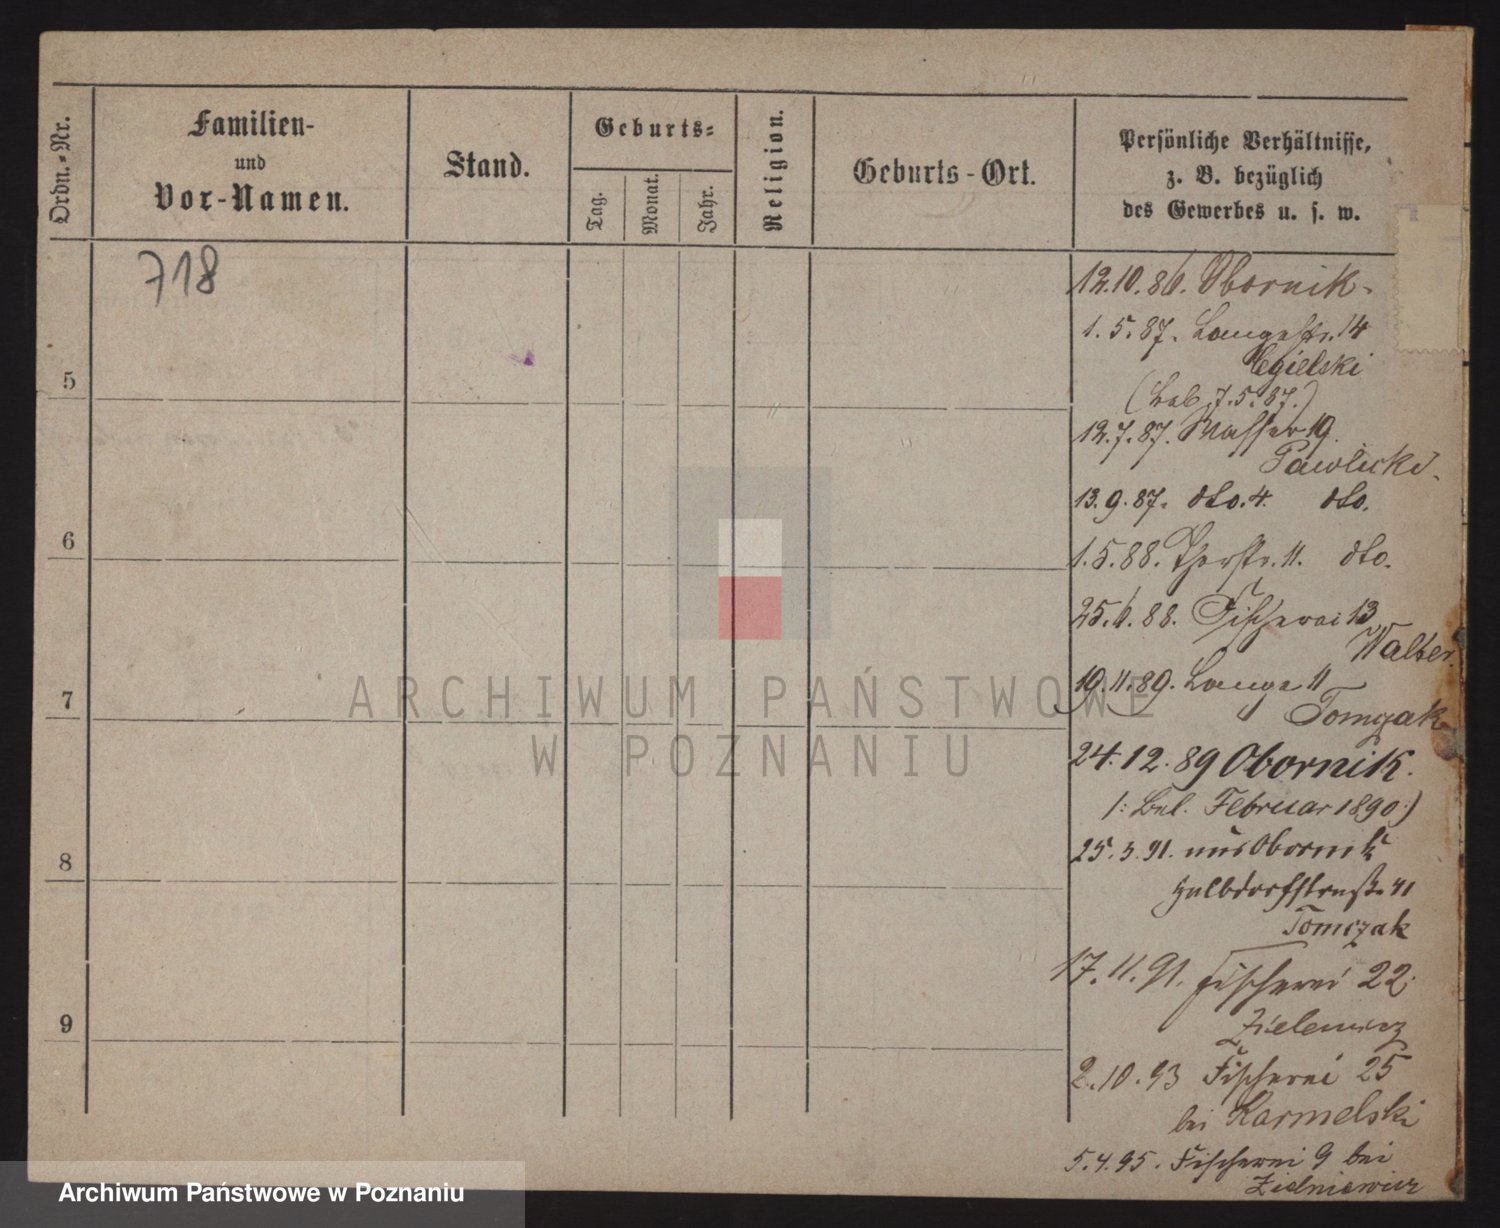 Ordn.-Nr.
Familien-
und
Vor-Namen.
Stand.
Geburts-
Tag.
Monat.
Jahr.
Religion.
Geburts-Ort.
Persönliche Verhältnisse,
z. B. bezüglich
des Gewerbes u. s. w.
718
5
6
7
8
9
12.10.86. Obornik.
1.5.87. Langestr. 14
Cegielski
7.5.87.)
12.7.87. Wasser 19.
Pawlicki.
13.9.87. dto. 4. dto.
1.5.88. Thorstr. 11. dto.
25.6.88. Fischerei 13
Walter.
19.11.89. Lange 11
Tomczak
24.12.89 Obornik.
/: Bel. Februar 1890:)
25.3.91. aus Obornik
Halbdorfstraße 41
Tomczak
17.11.91. Fischerei 22.
Zielewicz
2.10.93 Fischerei 25
bei Karmelski
5.4.95. Fischerei 9 bei
Zielniewicz
ARCHIWUM PAŃSTWOWE
W POZNANIU
Archiwum Państwowe w Poznaniu